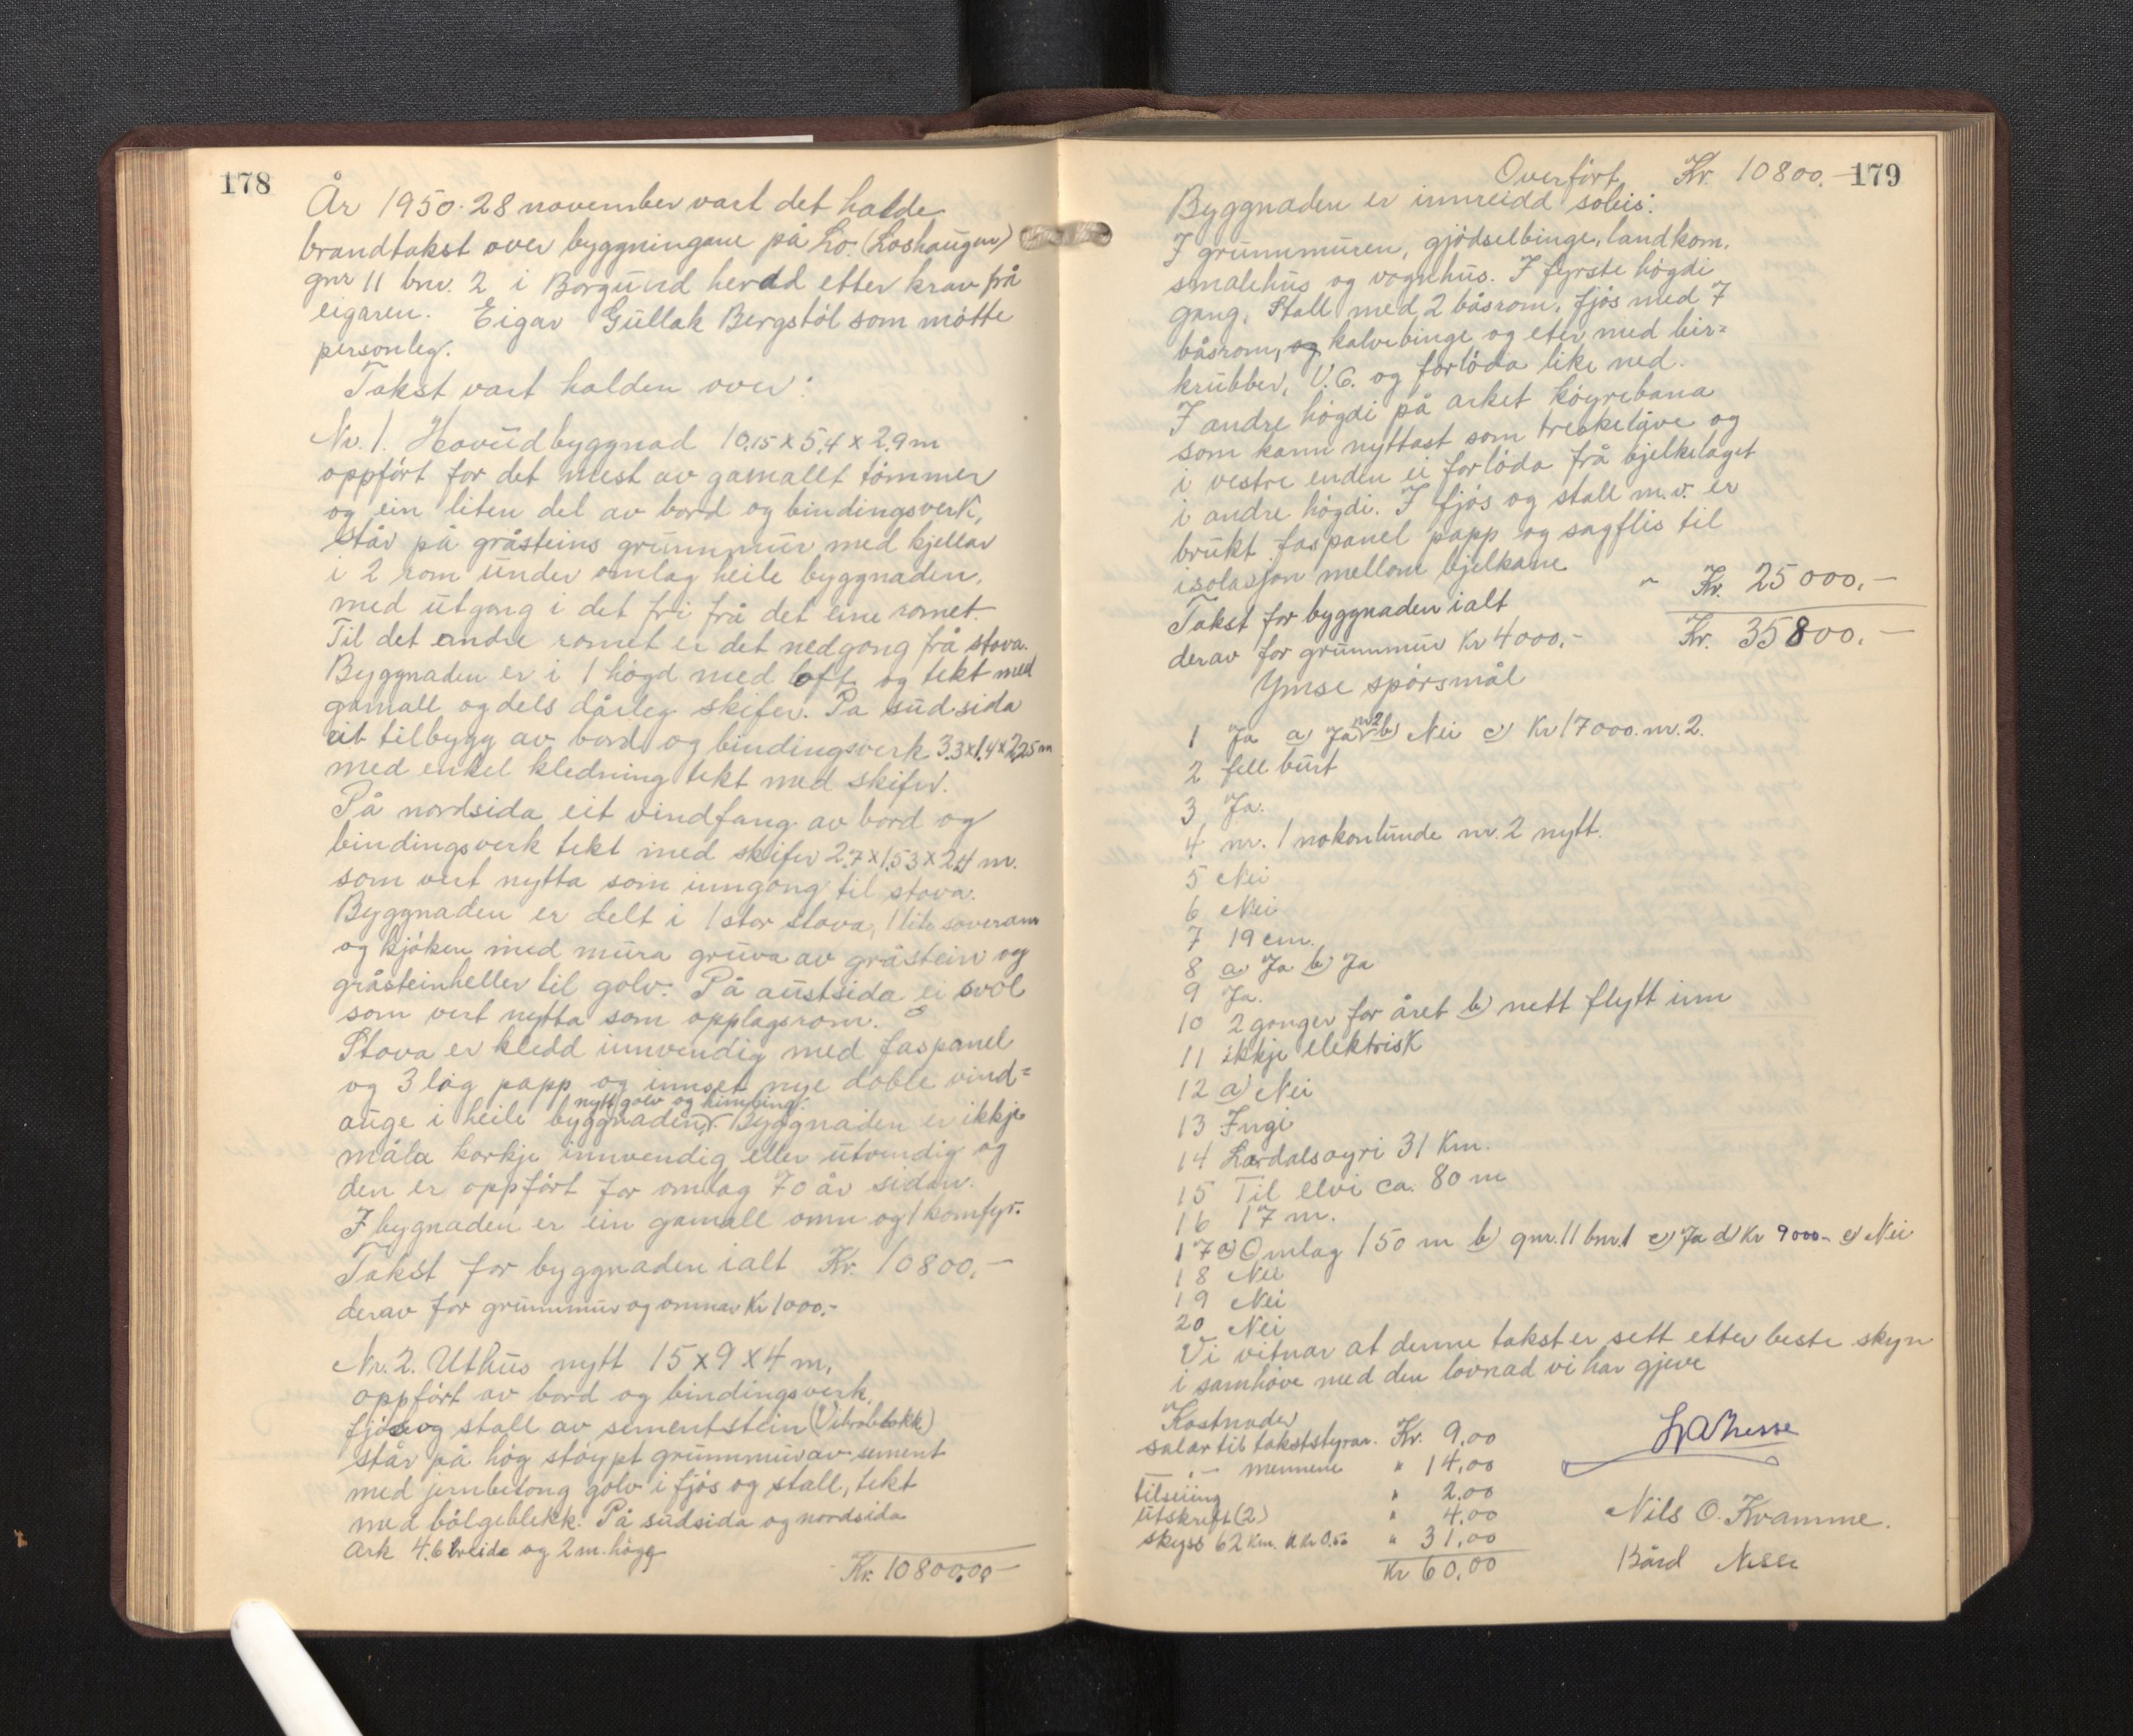 178
År 1950. 28 november vart det halde
brandtakst over byggningane på Lo. (Loshaugen)
gnr 11 bnr. 2 i Borgund herad etter krav frå
eigaren. Eigar Gullak Bergstøl som møtte
personleg.
Takst vart halden over:
Nr. 1. Hovudbyggnad 10,15 x 5,4 x 2,9 m
oppført for det mest av gamallt tømmer
og ein liten del av bord og bindingsverk,
står på gråsteins grunnmur med kjellar
i 2 rom under omlag heile byggnaden,
med utgong i det fri frå det eine romet.
Til det andre romet er det nedgong frå stova.
Byggnaden er i 1 høgd med loft og tekt med
gamall og dels dårleg skifer. På sudsida
eit tilbygg av bord og bindingsverk 3,3x1,4x2,25 m
med enkel kledning tekt med skifer.
På nordsida eit vindfang av bord og
bindingsverk tekt med skifer 2,7 x 1,53 x 2,4 m.
som vert nytta som inngong til stova.
Byggnaden er delt i 1 stor stova, 1 lite soverom
og kjøken med mura gruva av gråstein og
gråsteinheller til golv. På austsida ei svol
som vert nytta som opplagsrom.
Stova er kledd innvendig med faspanel
og 3 lag papp og innset nye doble vind=
nytt golv og himling.
auge i heile byggnaden. Byggnaden er ikkje
måla korkje innvendig eller utvendig og
den er oppført for omlag 70 år sidan.
I bygnaden er ein gamall omn og 1 komfyr.
Takst for byggnaden ialt Kr. 10800,-
derav for grunnmur og omnar Kr 1000,-
Nr. 2. Uthus nytt 15 x 9 x 4 m,
oppført av bord og bindingsverk,
fjøs og stall av sementstein (Vibroblokk)
står på høg støypt grunnmur av sement
med jernbetong golv i fjøs og stall, tekt
med bølgeblekk. På sudsida og nordsida
Ark 4.6 breide og 2 m. høgg
Kr. 10800,00
179
Overført Kr. 10800.-
Byggnaden er innreidd soleis:
I grunnmuren, gjødselbinge, landkom,
smalehus og vognhus. I fyrste høgdi
gang, Stall med 2 båsrom, fjøs med 7
båsrom, og kalvebinge og eter med leir=
krubber, V.C. og forløda like ned.
I andre høgdi på arket køyrebana
som kann nyttast som treskelåve og
i vestre enden ei forløda frå bjelkelaget
i andre høgdi. I fjøs og stall m.v. er
brukt faspanel papp og sagflis til
isolasjon mellom bjelkane
Takst for byggnaden ialt " Kr. 25000,-
derav for grunnmur Kr 4000,- Kr. 35800,-
Ymse spørsmål
1 Ja a) Ja nr 2 b) Nei c) Kr 17000. nr. 2.
2 fell burt
3 Ja.
4 nr. 1 nokonlunde nr. 2 nytt.
5 Nei
6 Nei
7 19 cm.
8 a) Ja b) Ja
9 Ja.
10 2 gonger for året b) nett flytt inn
11 ikkje elektrisk
12 a) Nei
13 Ingi
14 Lærdalsøyri 31 Km.
15 Til elvi ca. 80 m
16 17 m.
17 a) Omlag 150 m b) gnr. 11 bnr. 1 c) Ja d) Kr 9000.- e) Nei
18 Nei
19 Nei
20 Nei
Vi vitnar at denne takst er sett etter beste skyn
i samhøve med den lovnad vi har gjeve
Kostnader
salær til takststyrar. Kr. 9,00
— " — mennene " 14,00
tilseiing " 2,00
utskrift (2) " 4,00
skyss 62 Km. a Kr 0.50 " 31,00
Kr 60,00
Nils O. Kvamme.
Bård Nesse